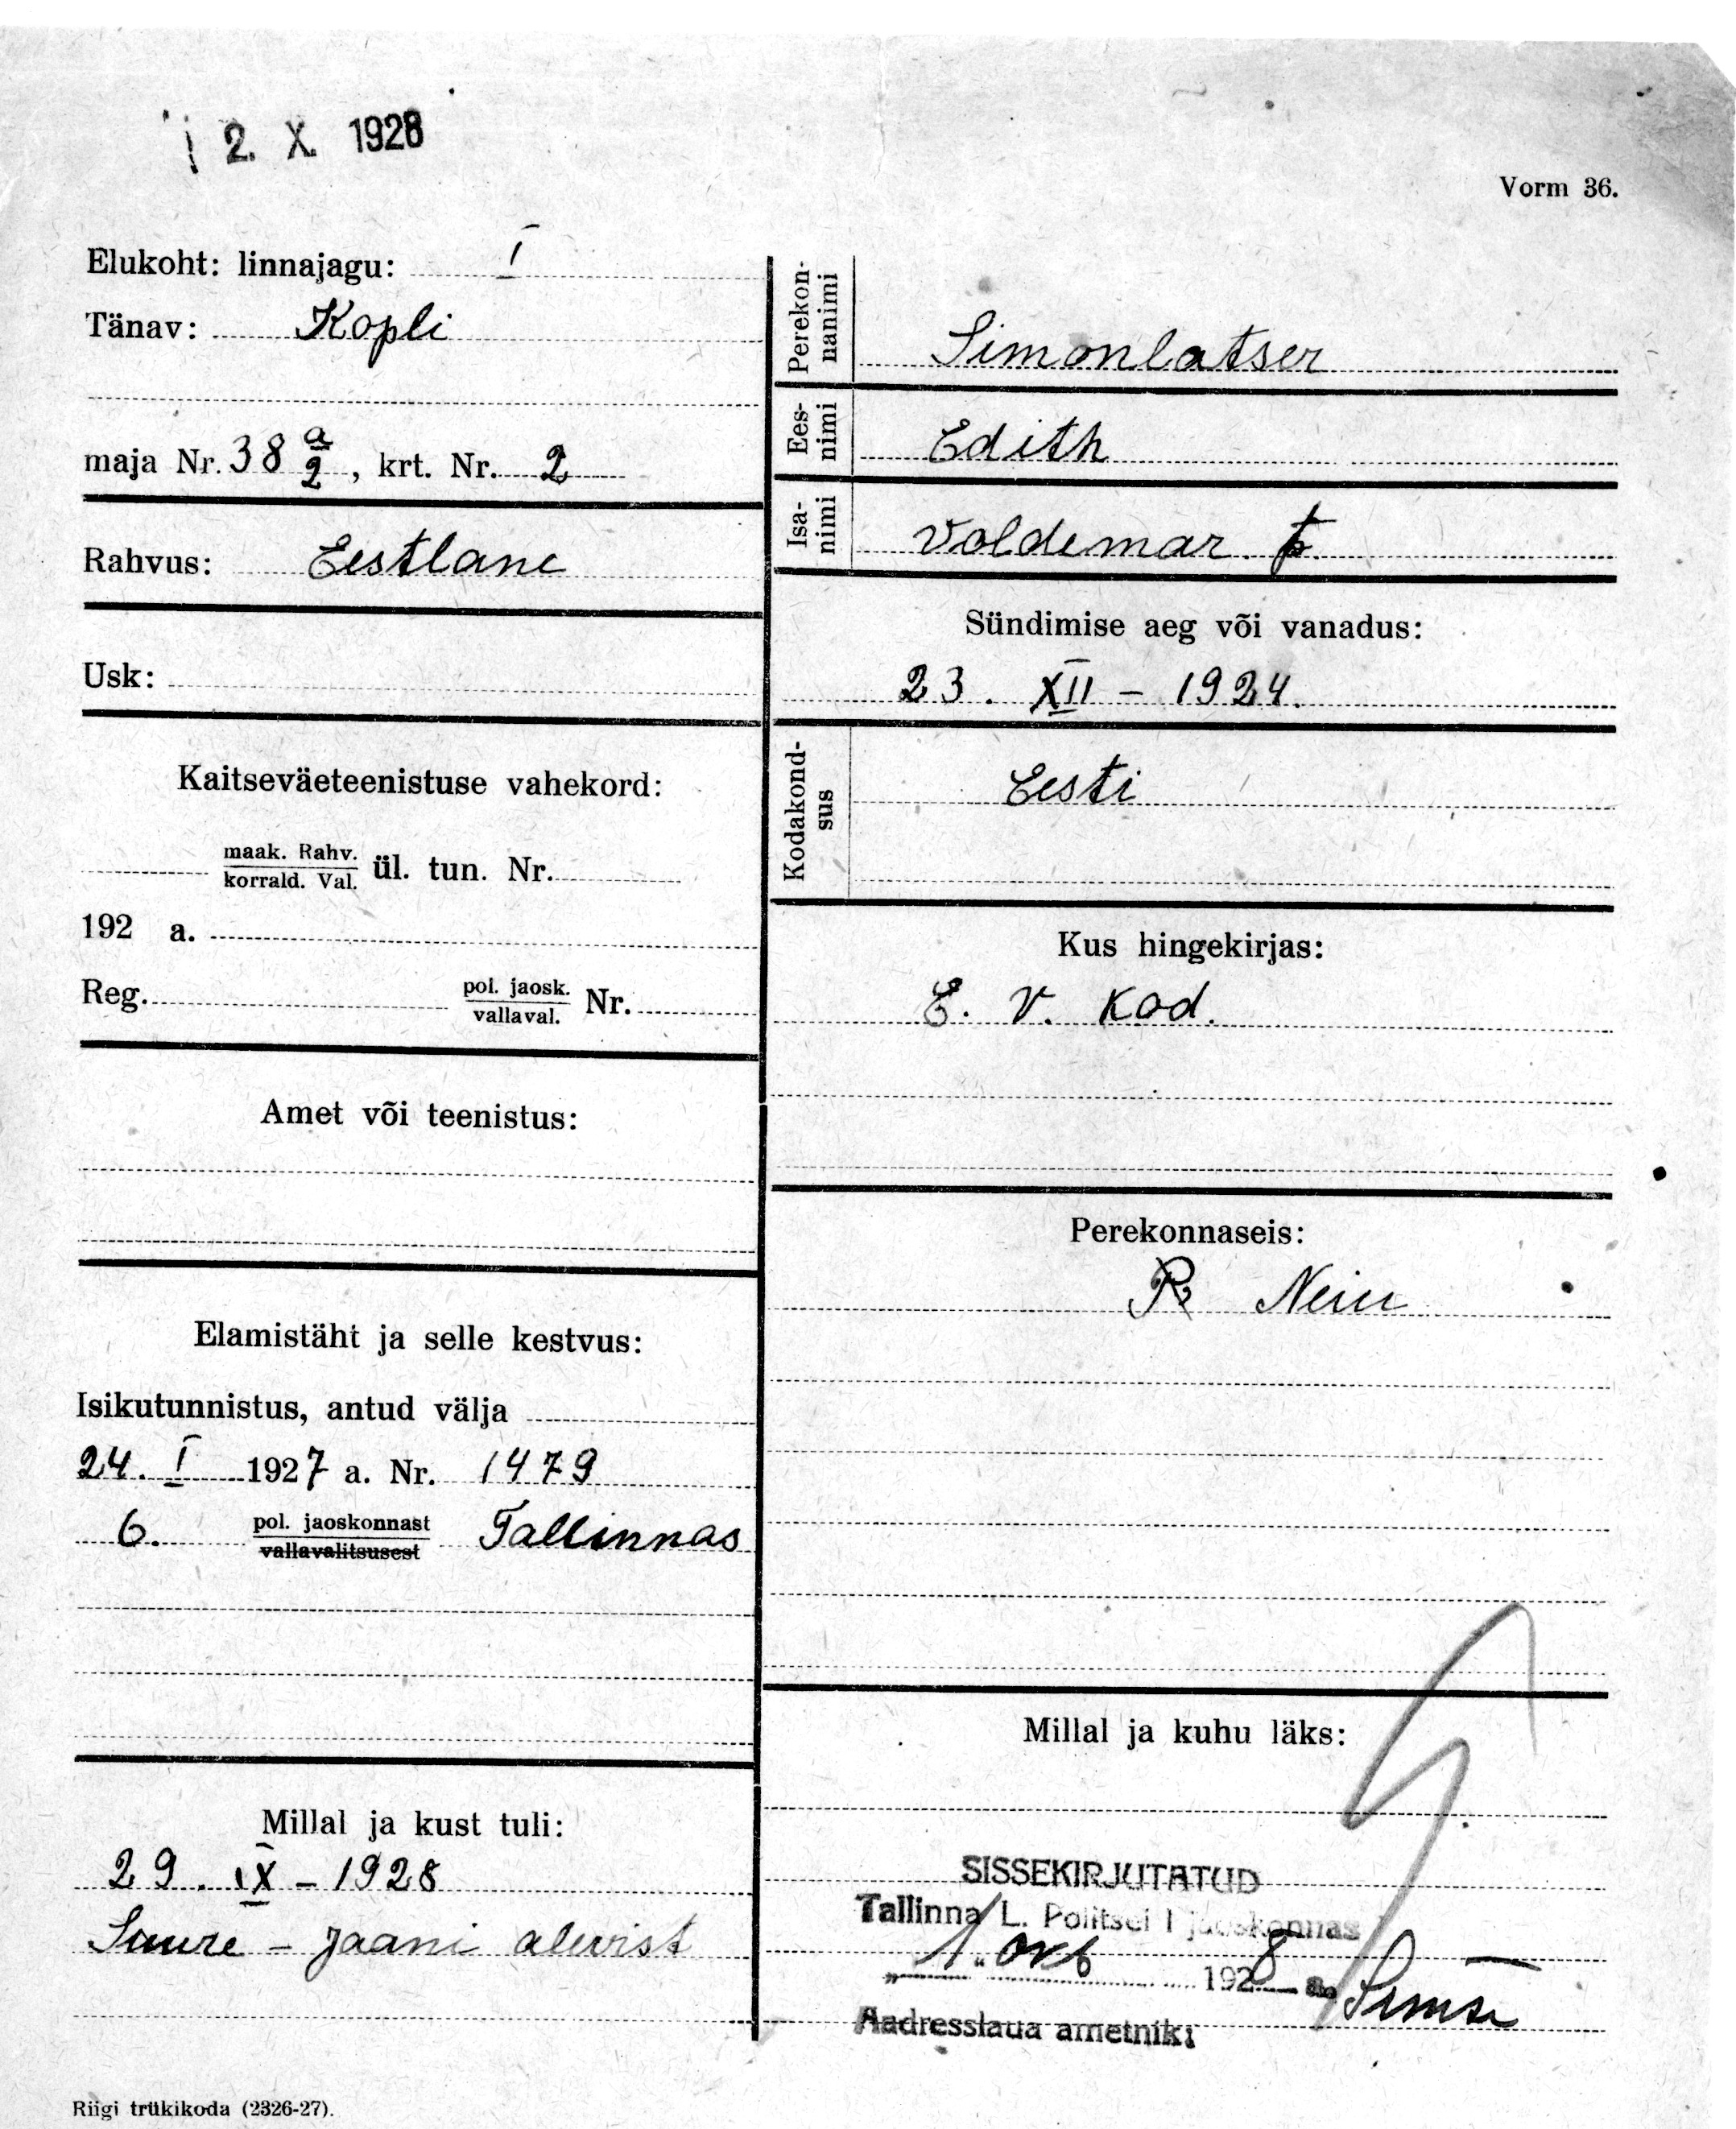 12. X. 1928
Vorm 36.
Elukoht: linnajagu: I
Tänav: Kopli
maja Nr. 38 a/2, krt. Nr. 2
Rahvus: Eestlane
Usk:
Kaitseväeteenistuse vahekord:
maak. Rahv.
korrald. Val. ül. tun. Nr.
192 a.
Reg. pol. jaosk.
vallaval. Nr.
Amet või teenistus:
Elamistäht ja selle kestvus:
Isikutunnistus, antud välja
24. I 1927 a. Nr. 1479
6. pol. jaoskonnast Tallinnas
vallavalitsusest
Millal ja kust tuli:
29. IX – 1928
Suure – Jaani alevist
Riigi trükikoda (2326-27).
Perekon-
nanimi Simonlatser
Ees-
nimi Edith
Isa-
nimi Voldemar t.
Sündimise aeg või vanadus:
23. XII – 1924.
Kodakond-
sus Eesti
Kus hingekirjas:
E. V. Kod.
Perekonnaseis:
Neiu
Millal ja kuhu läks:
SISSEKIRJUTATUD
Tallinna L. Politsei I jaoskonnas
"1." okt 1928 a.
Aadresslaua ametnik: